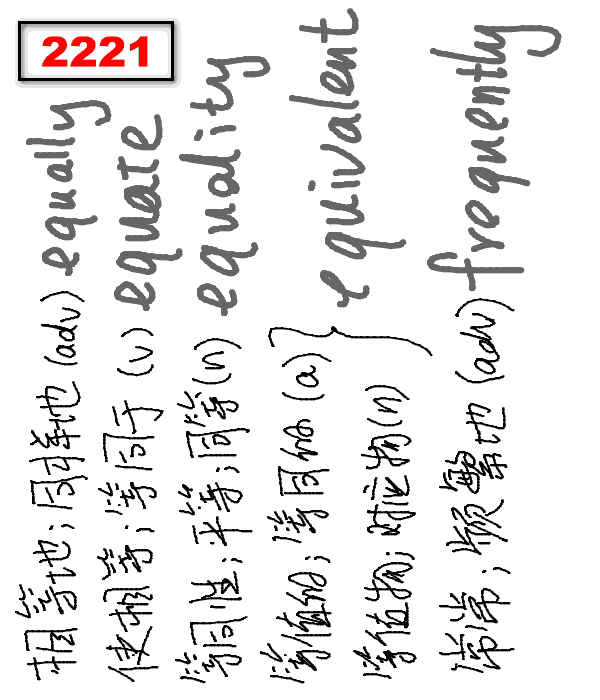 2221
相等地;同样地 (adv) equally
使相等;等同于 (v) equate
等同性;平等;同等(n) equality
等值的;等同的 (a)
等值物;对应物(n)
} equivalent
常常;频繁地 (adv) frequently